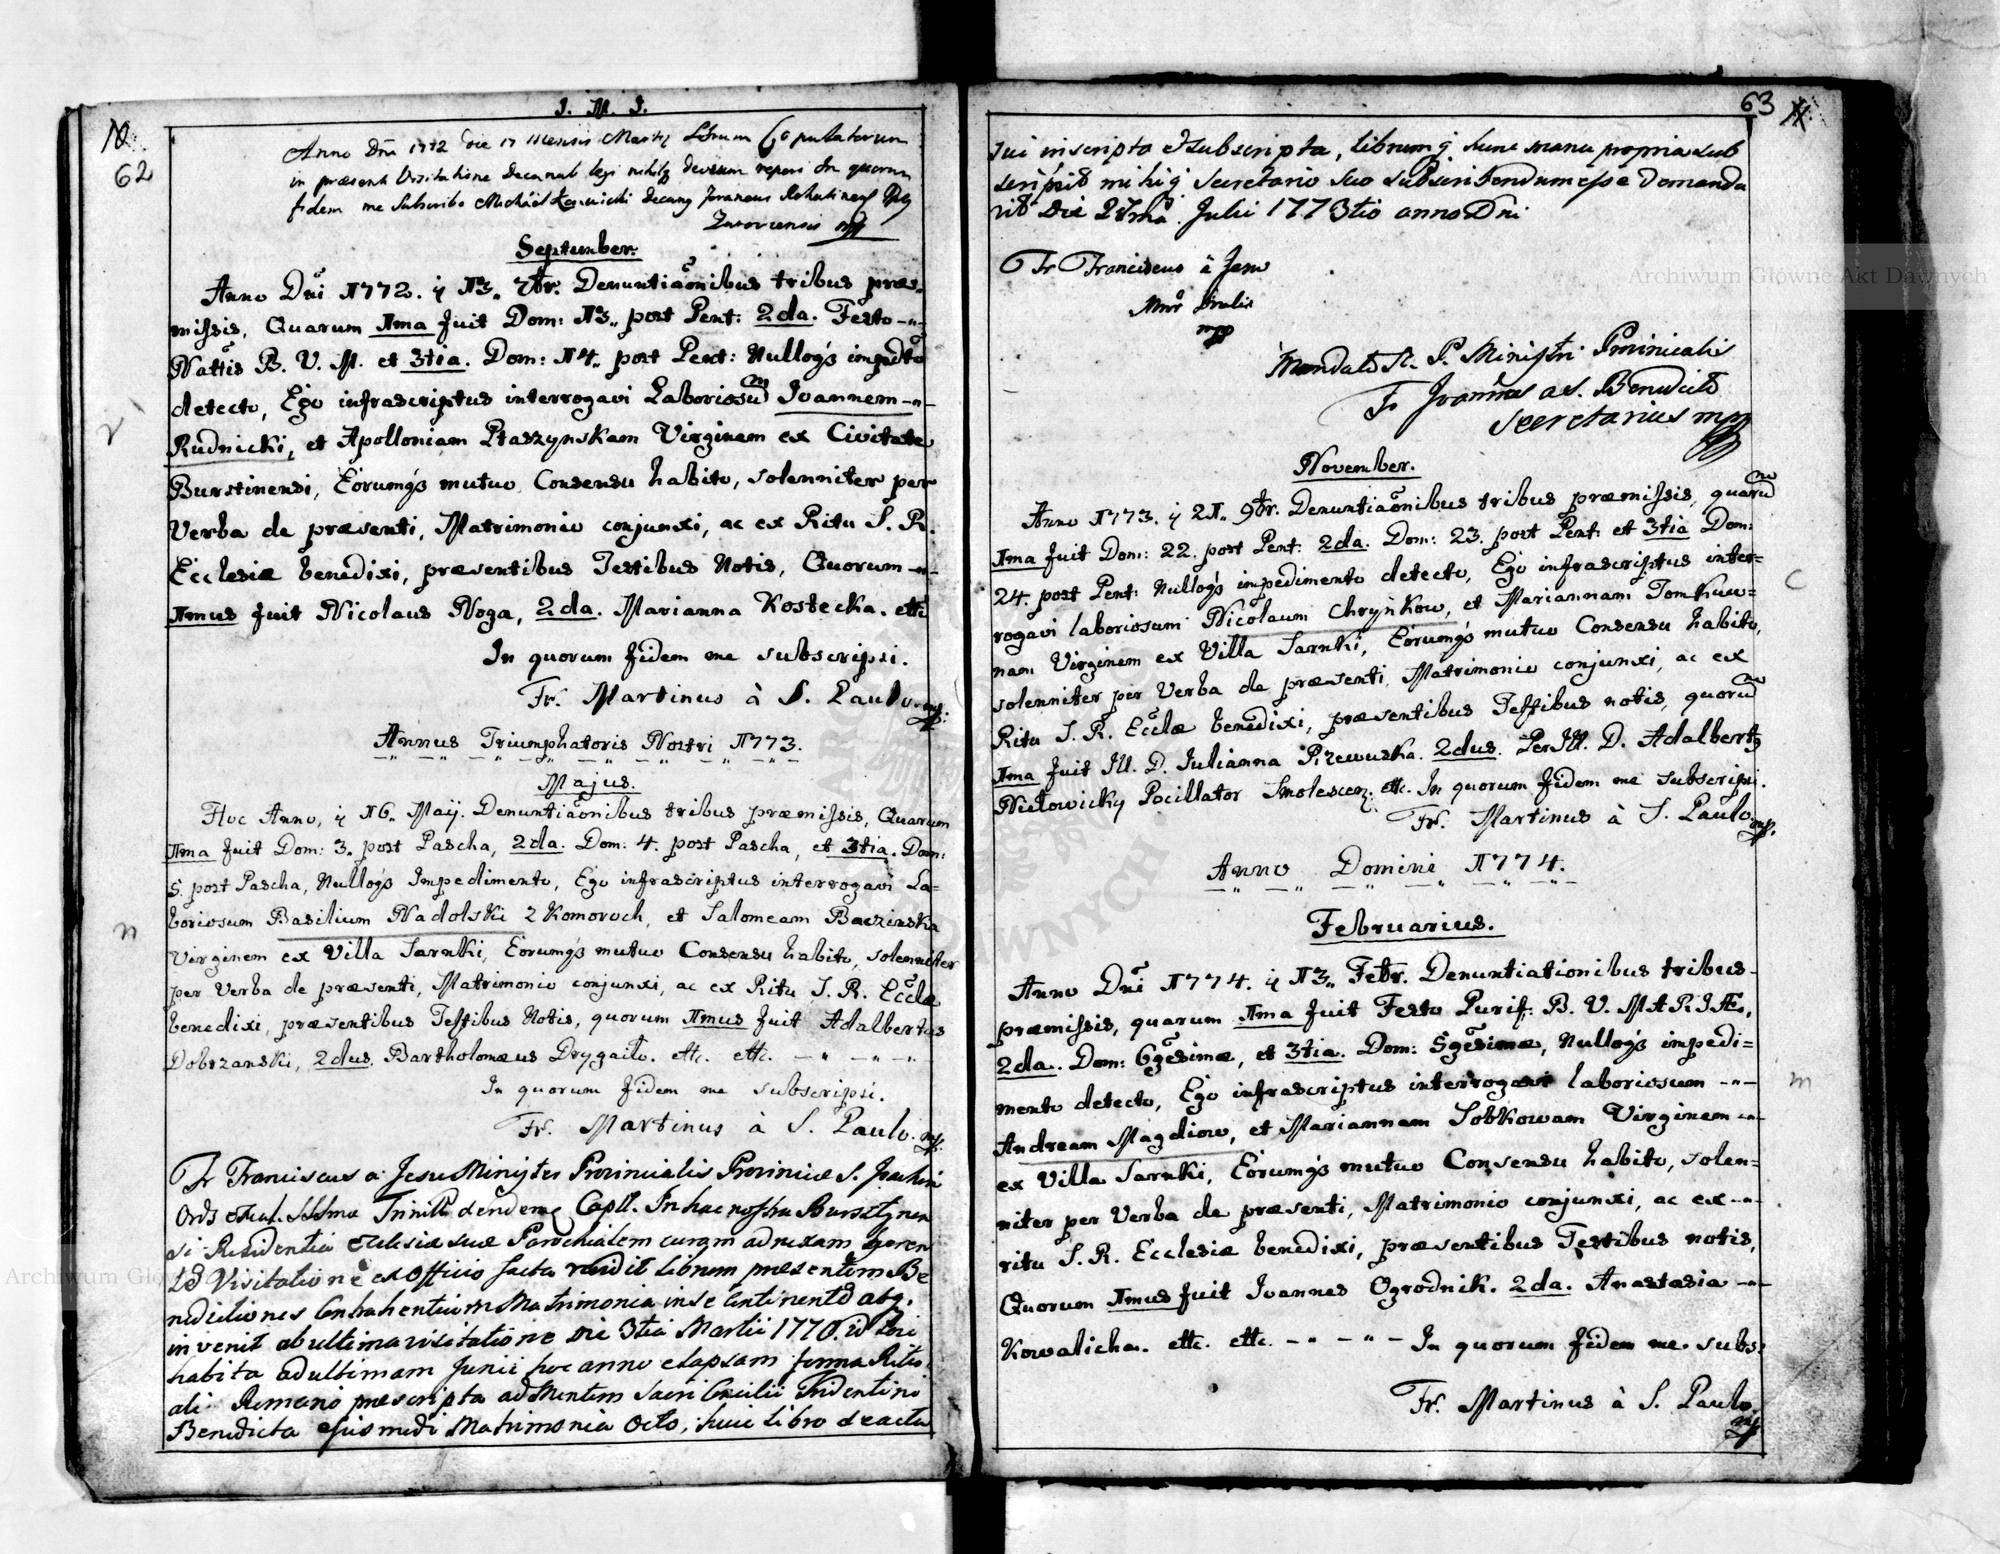 J. M. J.
N
62
Anno Dni 1772 die 17 Mensis Martij Librum Copulatorum
in præsenti Visitatione Decanali legi nihilq devium reperi In quorum
fidem me Subscribo Michael Decang Foraneus Rohatinen
mp
September.
Anno Dni 1772. ÿ 13„ 7br. Denuntiaonibus tribus præ-
missis, Quarum 1ma fuit Dom: 13„ post Pent: 2da. Festo
Nattis B. V. M. et 3tia. Dom: 14„ post Pent: Nulloqs impedto
detecto, Ego infrascriptus interrogavi Laboriosu Joannem
Rudnicki, et Apolloniam Ptaszynskam Virginem ex Civitate
Burstinensi, Eorumqs mutuo Consensu habito, solenniter per
Verba de præsenti, Matrimonio conjunxi, ac ex Ritu S. R.
Ecclesiæ benedixi, præsentibus Testibus Notis, Quorum
1mus fuit Nicolaus Noga, 2da. Marianna Kostecka. ettc
In quorum fidem me subscripsi.
Fr. Martinus à S. Paulo. mp.
Annus Triumphatoris Nostri 1773.
Majus.
Hoc Anno, ÿ 16„ Maij. Denuntiaonibus tribus præmissis, Quarum
1ma fuit Dom: 3. post Pascha, 2da. Dom: 4. post Pascha, et 3tia. Dom:
5. post Pascha, Nulloqs Impedimento, Ego infrascriptus interrogavi La-
boriosum Basilium Nadolski z Komoroch, et Salomeam Baczinska
n
Virginem ex Villa Sarnki, Eorumqs mutuo Consensu habito, solenniter
per Verba de præsenti, Matrimonio conjunxi, ac ex Ritu S. R. Ecclæ
benedixi, præsentibus Testibus Notis, quorum 1mus fuit Adalbertus
Dobrzanski, 2dus. Bartholomæus Drygailo. ettc. ettc.
In quorum fidem me subscripsi.
Fr. Martinus à S. Paulo. mp.
Fr Franciscus a Jesu Minister Provincialis Provinciæ S. Joachim
Ords Excal. SSSmæ Trinitt dendemq Captt. In hac nostra Bursztynen
si Residentia Ecclesiæ suæ Parochialem curam adnexam geren
Visitatione ex Officio facta vidit librum præsentem Be
nedictiones Contrahentium Matrimonia in se Continente atq.
invenit ab ultima visitatione die 3tia Martii 1770.
habita ad ultimam Junii hoc anno elapsam forma Ritu
ali Romano præscripta ad Mentem Sacri Concilii Tridentini
Benedicta ejusmodi Matrimonia Octo, huic Libro exacta
63
sui inscripta et subscripta, librumq. hunc manu propria sub
scripsit mihiq secretario suo subscribendum esse demanda
vit Die 27ma Julii 1773tio anno Dni
Fr Franciscus à Jesu
Mnr Prulis
mpp
Mandato R. P. Ministri Provincialis
Fr Joannes a S. Benedicto
Secretarius mpp
November.
Anno 1773. ÿ 21„ 9br. Denuntiaonibus tribus præmissis, quaru
1ma fuit Dom: 22. post Pent: 2da. Dom: 23. post Pent: et 3tia Dom:
24. post Pent: Nulloqs impedimento detecto, Ego infrascriptus inter=
c
rogavi laboriosum Nicolaum Chrynkow, et Mariannam Tomkuw=
nam Virginem ex Villa Sarnki, Eorumqs mutuo Consensu habito,
solenniter per Verba de præsenti, Matrimonio conjunxi, ac ex
Ritu S. R. Ecclæ benedixi, præsentibus Testibus notis, quoru
1ma fuit Ill. D. Julianna Przewuska. 2dus. PerIll. D. Adalbertq
Nietowicky Pocillator Smolescen. ettc. In quorum fidem me subscripsi.
Fr. Martinus à S. Paulo. mp.
Anno Domini 1774.
Februarius.
Anno Dni 1774. ÿ 13„ Febr. Denuntiationibus tribus
præmissis, quarum 1ma fuit Festo Purif. B. V. MARIÆ,
2da. Dom: 6gesimæ, et 3tia. Dom: 5gesimæ, Nulloqs impedi=
m
mento detecto, Ego infrascriptus interrogavi laboriosum
Andream Magdiow, et Mariannam Sobkowam Virginem
ex Villa Sarnki, Eorumqs mutuo Consensu habito, solen=
niter per Verba de præsenti, Matrimonio conjunxi, ac ex
ritu S. R. Ecclesiæ benedixi, præsentibus Testibus notis,
Quorum 1mus fuit Joannes Ogrodnik. 2da. Anastasia
Kowalicha. ettc. ettc. In quorum fidem me. subs:
Fr. Martinus à S. Paulo.
mp.
Archiwum Główne Akt Dawnych